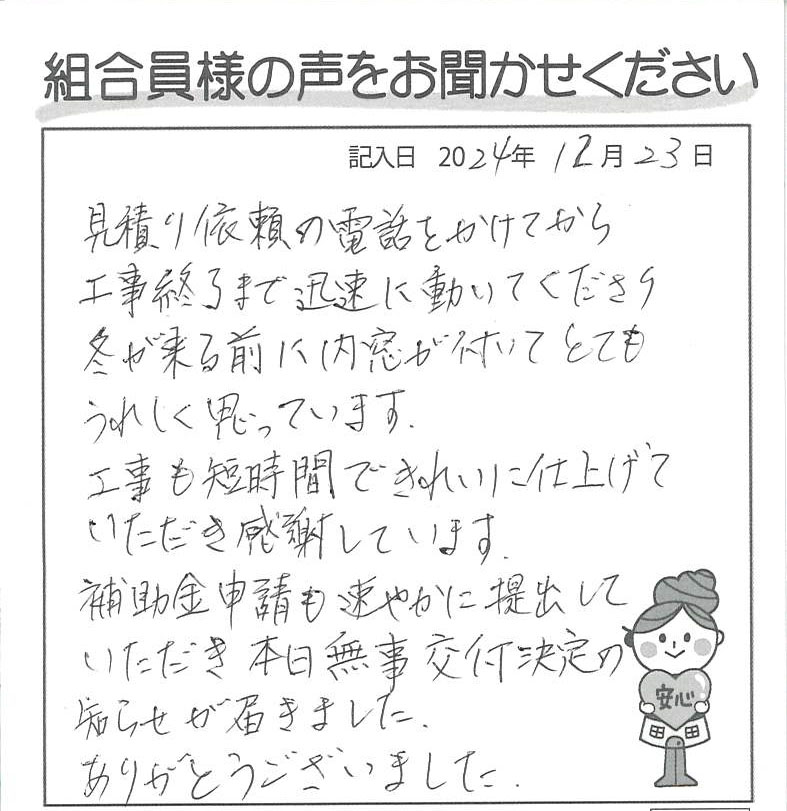 組合員様の声をお聞かせください
記入日 2024年 12月 23日
見積り依頼の電話をかけてから
工事終了まで迅速に動いてくださり
冬が来る前に内窓が付いてとても
うれしく思っています.
工事も短時間できれいに仕上げて
いただき感謝しています.
補助金申請も速やかに提出して
いただき本日無事交付決定の
知らせが届きました.
ありがとうございました.
安心